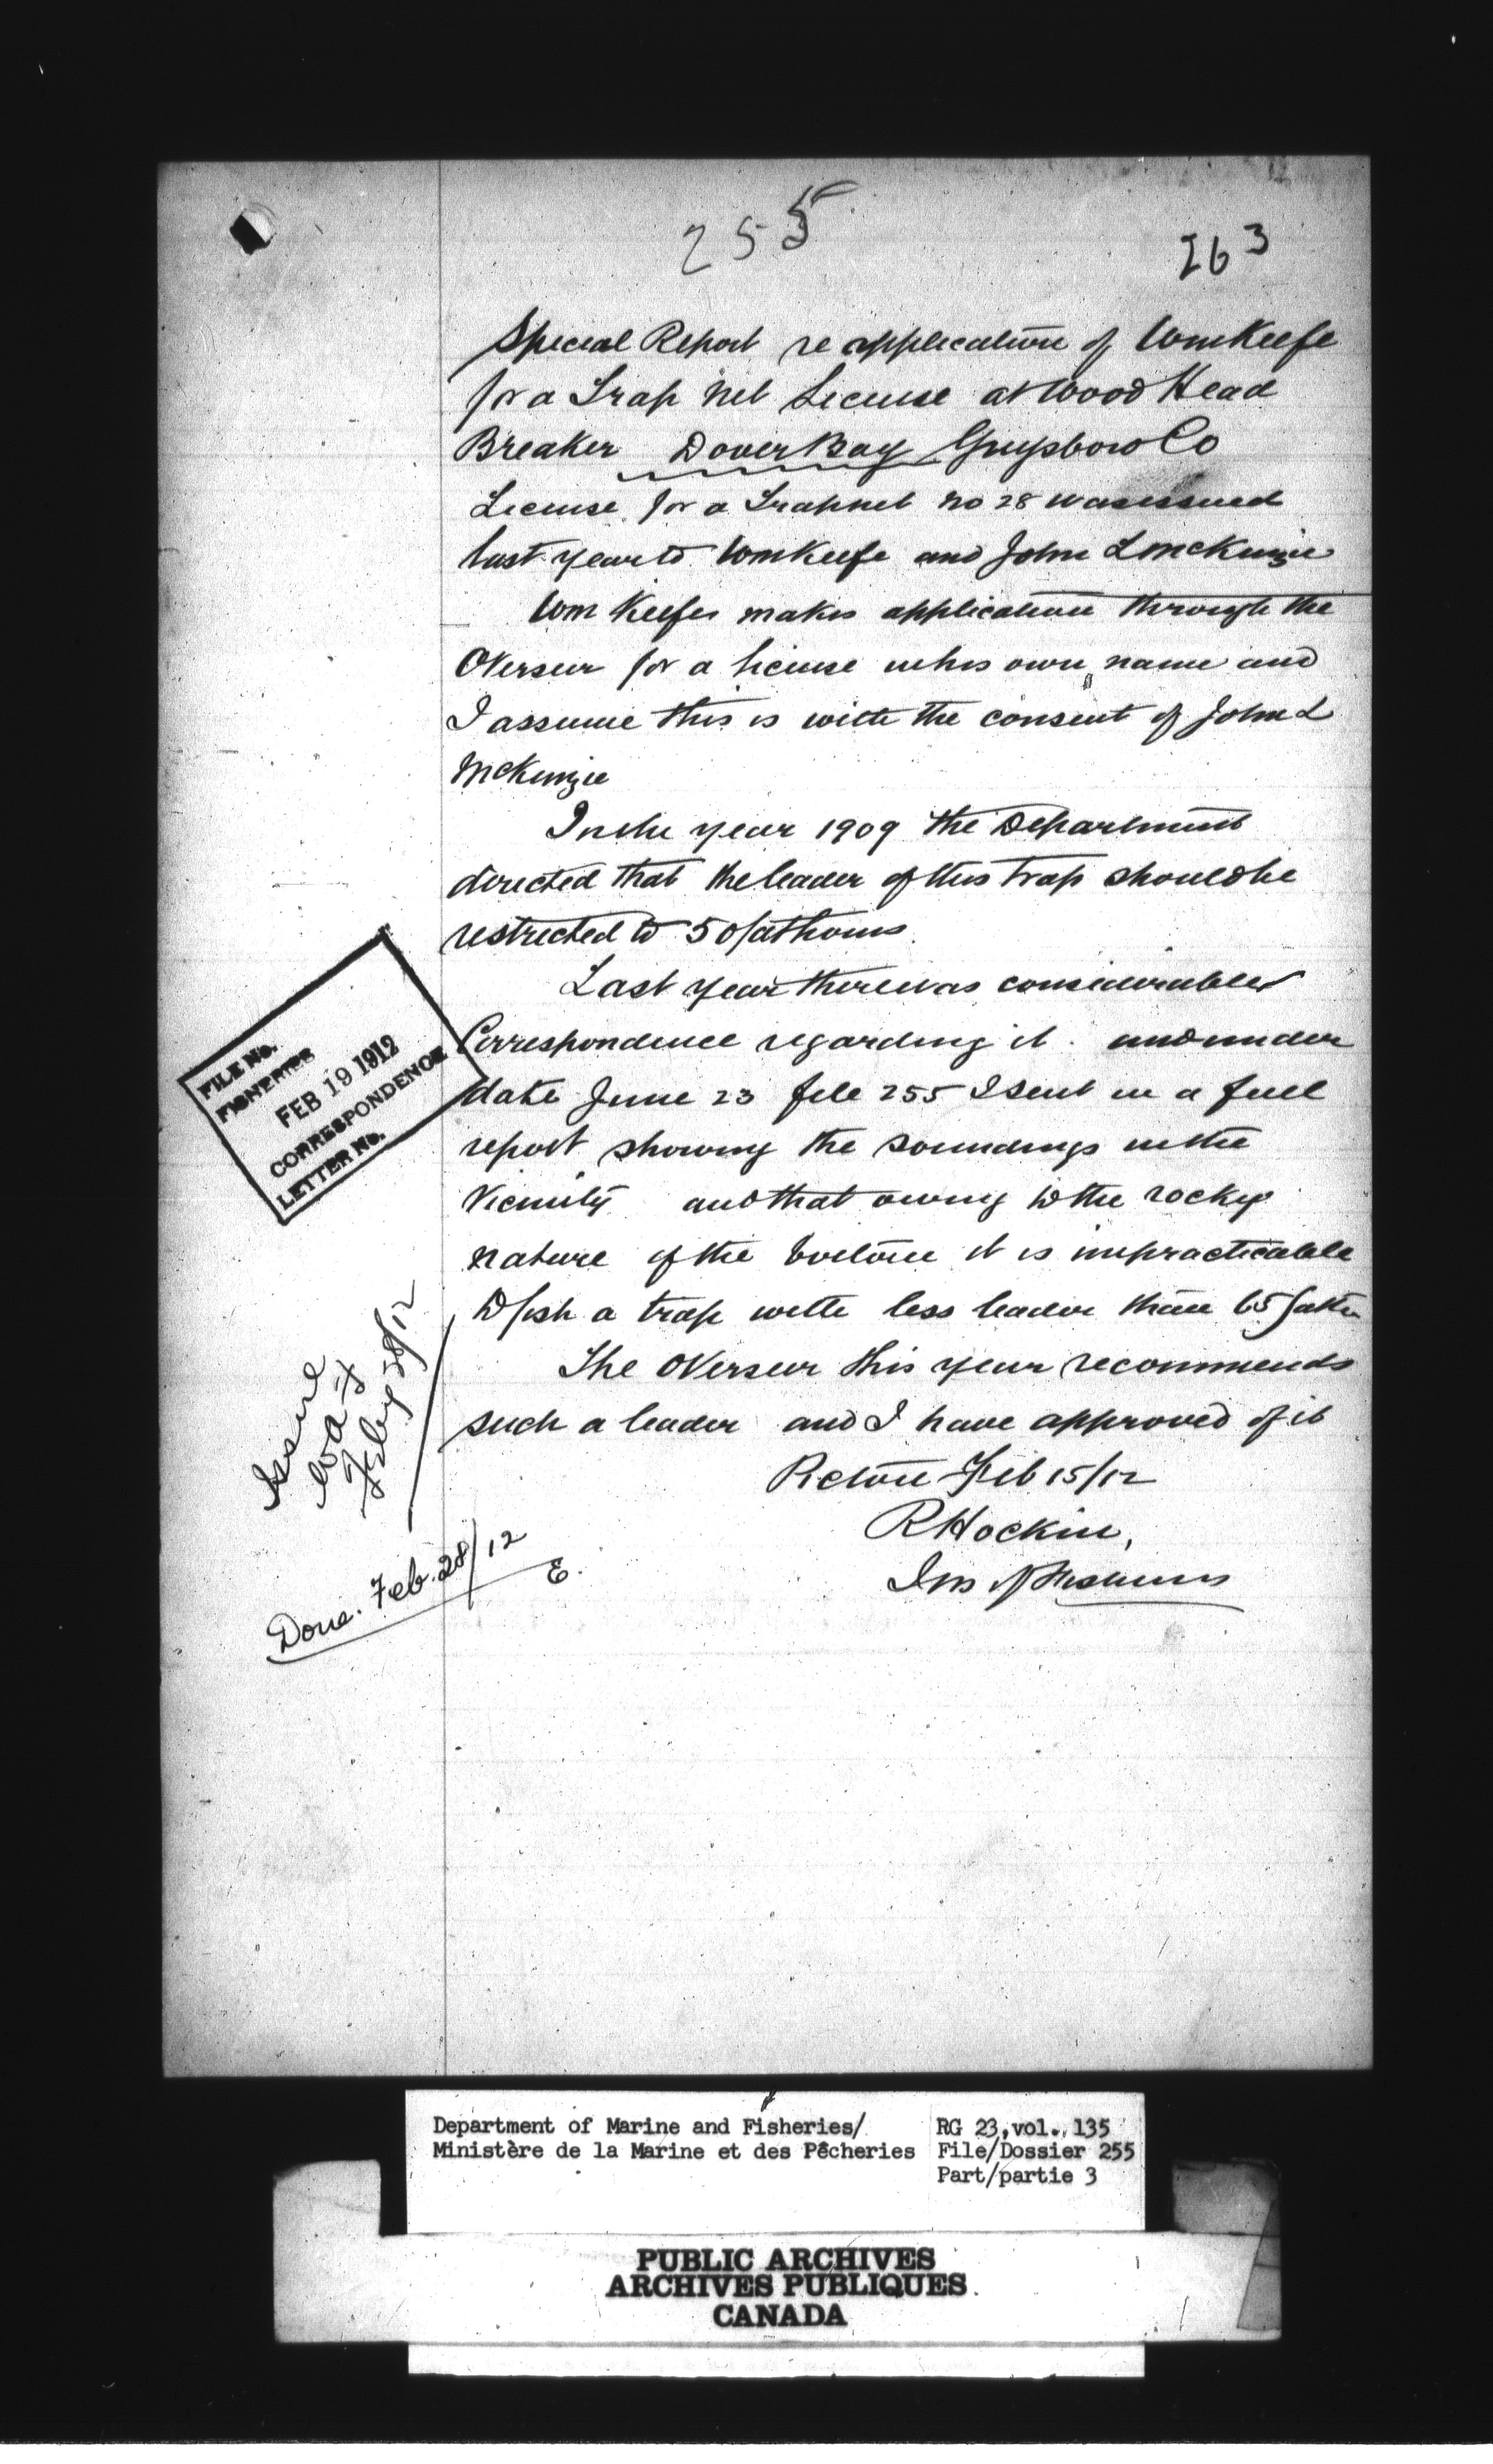 255
263
Special Report re application of Wm Keefe
for a Trap Net License at Wood Head
Breaker Dover Bay Guysboro Co
License for a Trapnet no 28 was issued
last year to Wm Keefe and John L McKenzie
Wm Keefe makes application through the
Overseer for a license in his own name and
I assume this is with the consent of John L
McKenzie
In the year 1909 the Department
directed that the leader of this trap should be
restricted to 50 fathoms
Last year there was considerable
Correspondence regarding it and under
date June 23 file 255 I sent in a full
report showing the soundings in the
Vicinity and that owing to the rocky
nature of the bottom it is impracticable
to fish a trap with less leader than 65 fath
The Overseer this year recommends
such a leader and I have approved of it
Pictou Feb 15/12
R Hockin,
Ins of Fisheries
FILE No.
FISHERIES
FEB 19 1912
CORRESPONDENCE
LETTER No.
Issue
Feby 28/12
Done. Feb. 28/12
E.
Department of Marine and Fisheries/ RG 23, vol. 135
Ministère de la Marine et des Pêcheries File/Dossier 255
Part/partie 3
PUBLIC ARCHIVES
ARCHIVES PUBLIQUES
CANADA